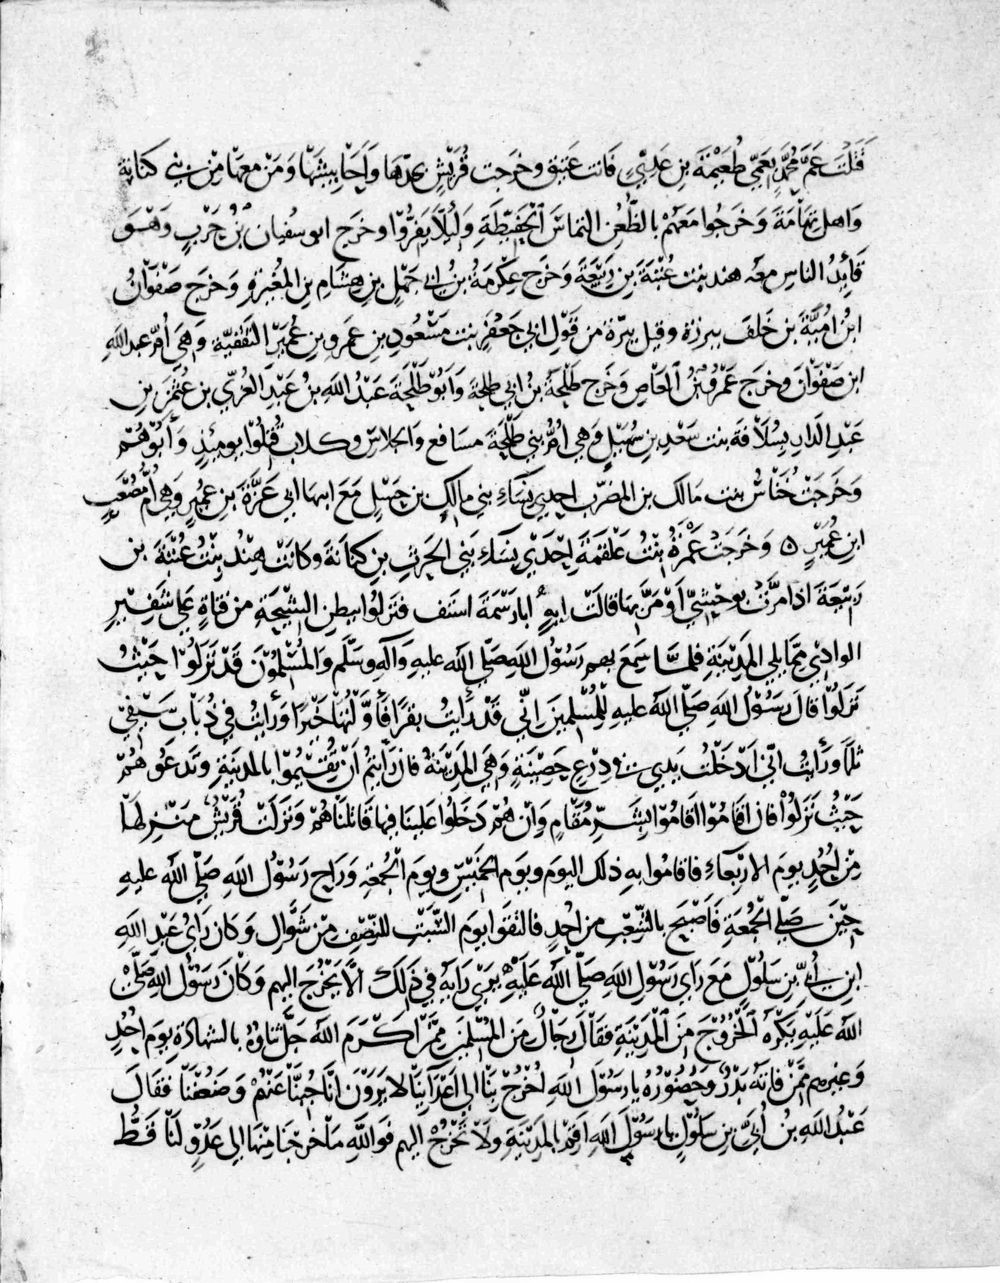 قتلت عم محمد بعمي طعيمة بن عدي فانت عتيق وخرجت قريش بحدها واحابيشها ومن معها من بني كنانة
واهل تهامة وخرجوا معهم بالظعن التماس الحفيظة ولئلا يفروا وخرج ابو سفيان بن حرب وهو
قائد الناس معه هند بنت عتبة بن ربيعة وخرج عكرمة بن ابي جهل بن هشام بن المغيرة وخرج صفوان
ابن امية بن خلف ببرزة وقيل ببرة من قول ابي جعفر بنت مسعود بن عمرو بن عمير الثقفية وهي أم عبدالله
ابن صفوان وخرج عمرو بن العاص وخرج طلحة بن ابي طلحة وابو طلحة عبد الله بن عبد العزي بن عثمن بن
عبد الدار بسلافة بنت سعد بن سهيل وهي ام بني طلحة مسافع والجلاس وكلاب قتلوا يومئذ وأبوهم
وخرجت خناس بنت مالك بن المضرب احدي نساء بني مالك بن حسل مع ابنها ابي عزة بن عمير وهي ام مصعب
ابن عمير ه وخرجت عمرة بنت علقمة احدي نساء بني الحرث بن كنانة وكانت هند بنت عتبة بن
ربيعة اذا مرت بوحشي أو مر بها قالت ايه ابا دسمة اشتف فنزلوا ببطن السبخة من قناة علي شفير
الوادي مما يلي المدينة فلما سمع بهم رسول الله صلى الله عليه وآله وسلم والمسلمون قد نزلوا حيث
نزلوا قال رسول الله صلى الله عليه للمسلمين اني قد رأيت بقرا فأولتها خيرا ورأيت في ذباب سيفي
ثلما ورأيت اني ادخلت يدي في درع حصينة وهي المدينة فان رأيتم ان تقيموا بالمدينة وتدعوهم
حيث نزلوا فان اقاموا اقاموا بشر مقام وان هم دخلوا علينا فيها قاتلناهم ونزلت قريش منزلها
من احد يوم الاربعاء فاقاموا به ذلك اليوم ويوم الخميس ويوم الجمعة وراح رسول الله صلى الله عليه
حين صلي الجمعة فاصبح بالشعب من احد فالتقوا يوم السبت للنصف من شوال وكان راي عبد الله
ابن أبي بن سلول مع راي رسول الله صلى الله عليه يري رايه في ذلك الا يخرج اليهم وكان رسول الله صلى
الله عليه يكره الخروج من المدينة فقال رجال من المسلمين ممن اكرم الله جل ثناؤه بالشهادة يوم احد
وغيرهم ممن فاته بدر وحضوره يا رسول الله اخرج بنا الي اعدآينا لا يرون انا جبنا عنهم وضعفنا فقال
عبد الله بن أبي بن سلول يا رسول الله اقم بالمدينة ولا تخرج اليهم فوالله ما خرجنا منها الي عدو لنا قط